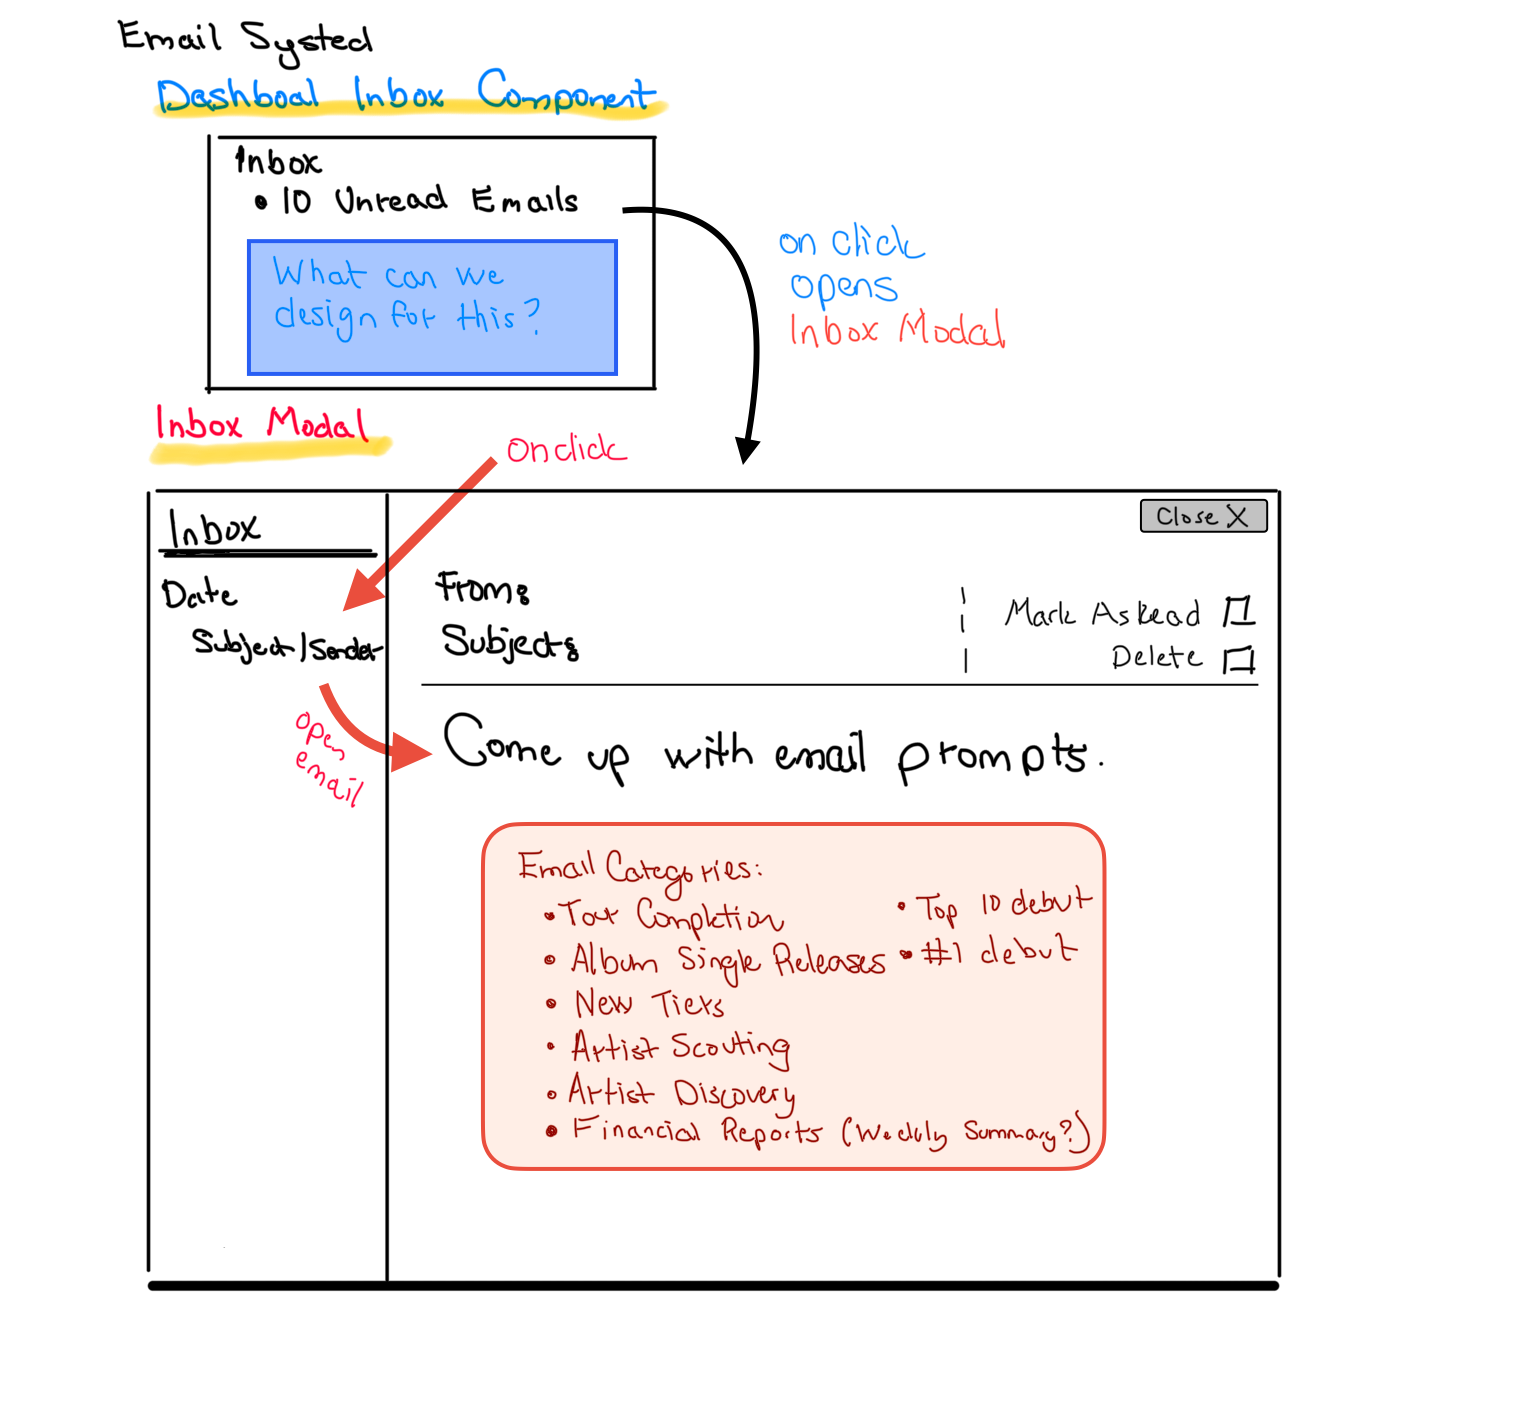 Email Systed
Dashboal Inbox Component
Inbox
• 10 Unread Emails
What can we
design for this?
on click
opens
Inbox Modal
Inbox Modal
onclick
Inbox
Close X
Date
Subject/Sender
From:
Subject:
Mark As Read
Delete
open
email
Come up with email prompts.
Email Categories:
• Tour Completion
• Album Single Releases
• New Tiers
• Artist Scouting
• Artist Discovery
• Financial Reports (Weekly Summary?)
• Top 10 debut
• #1 debut